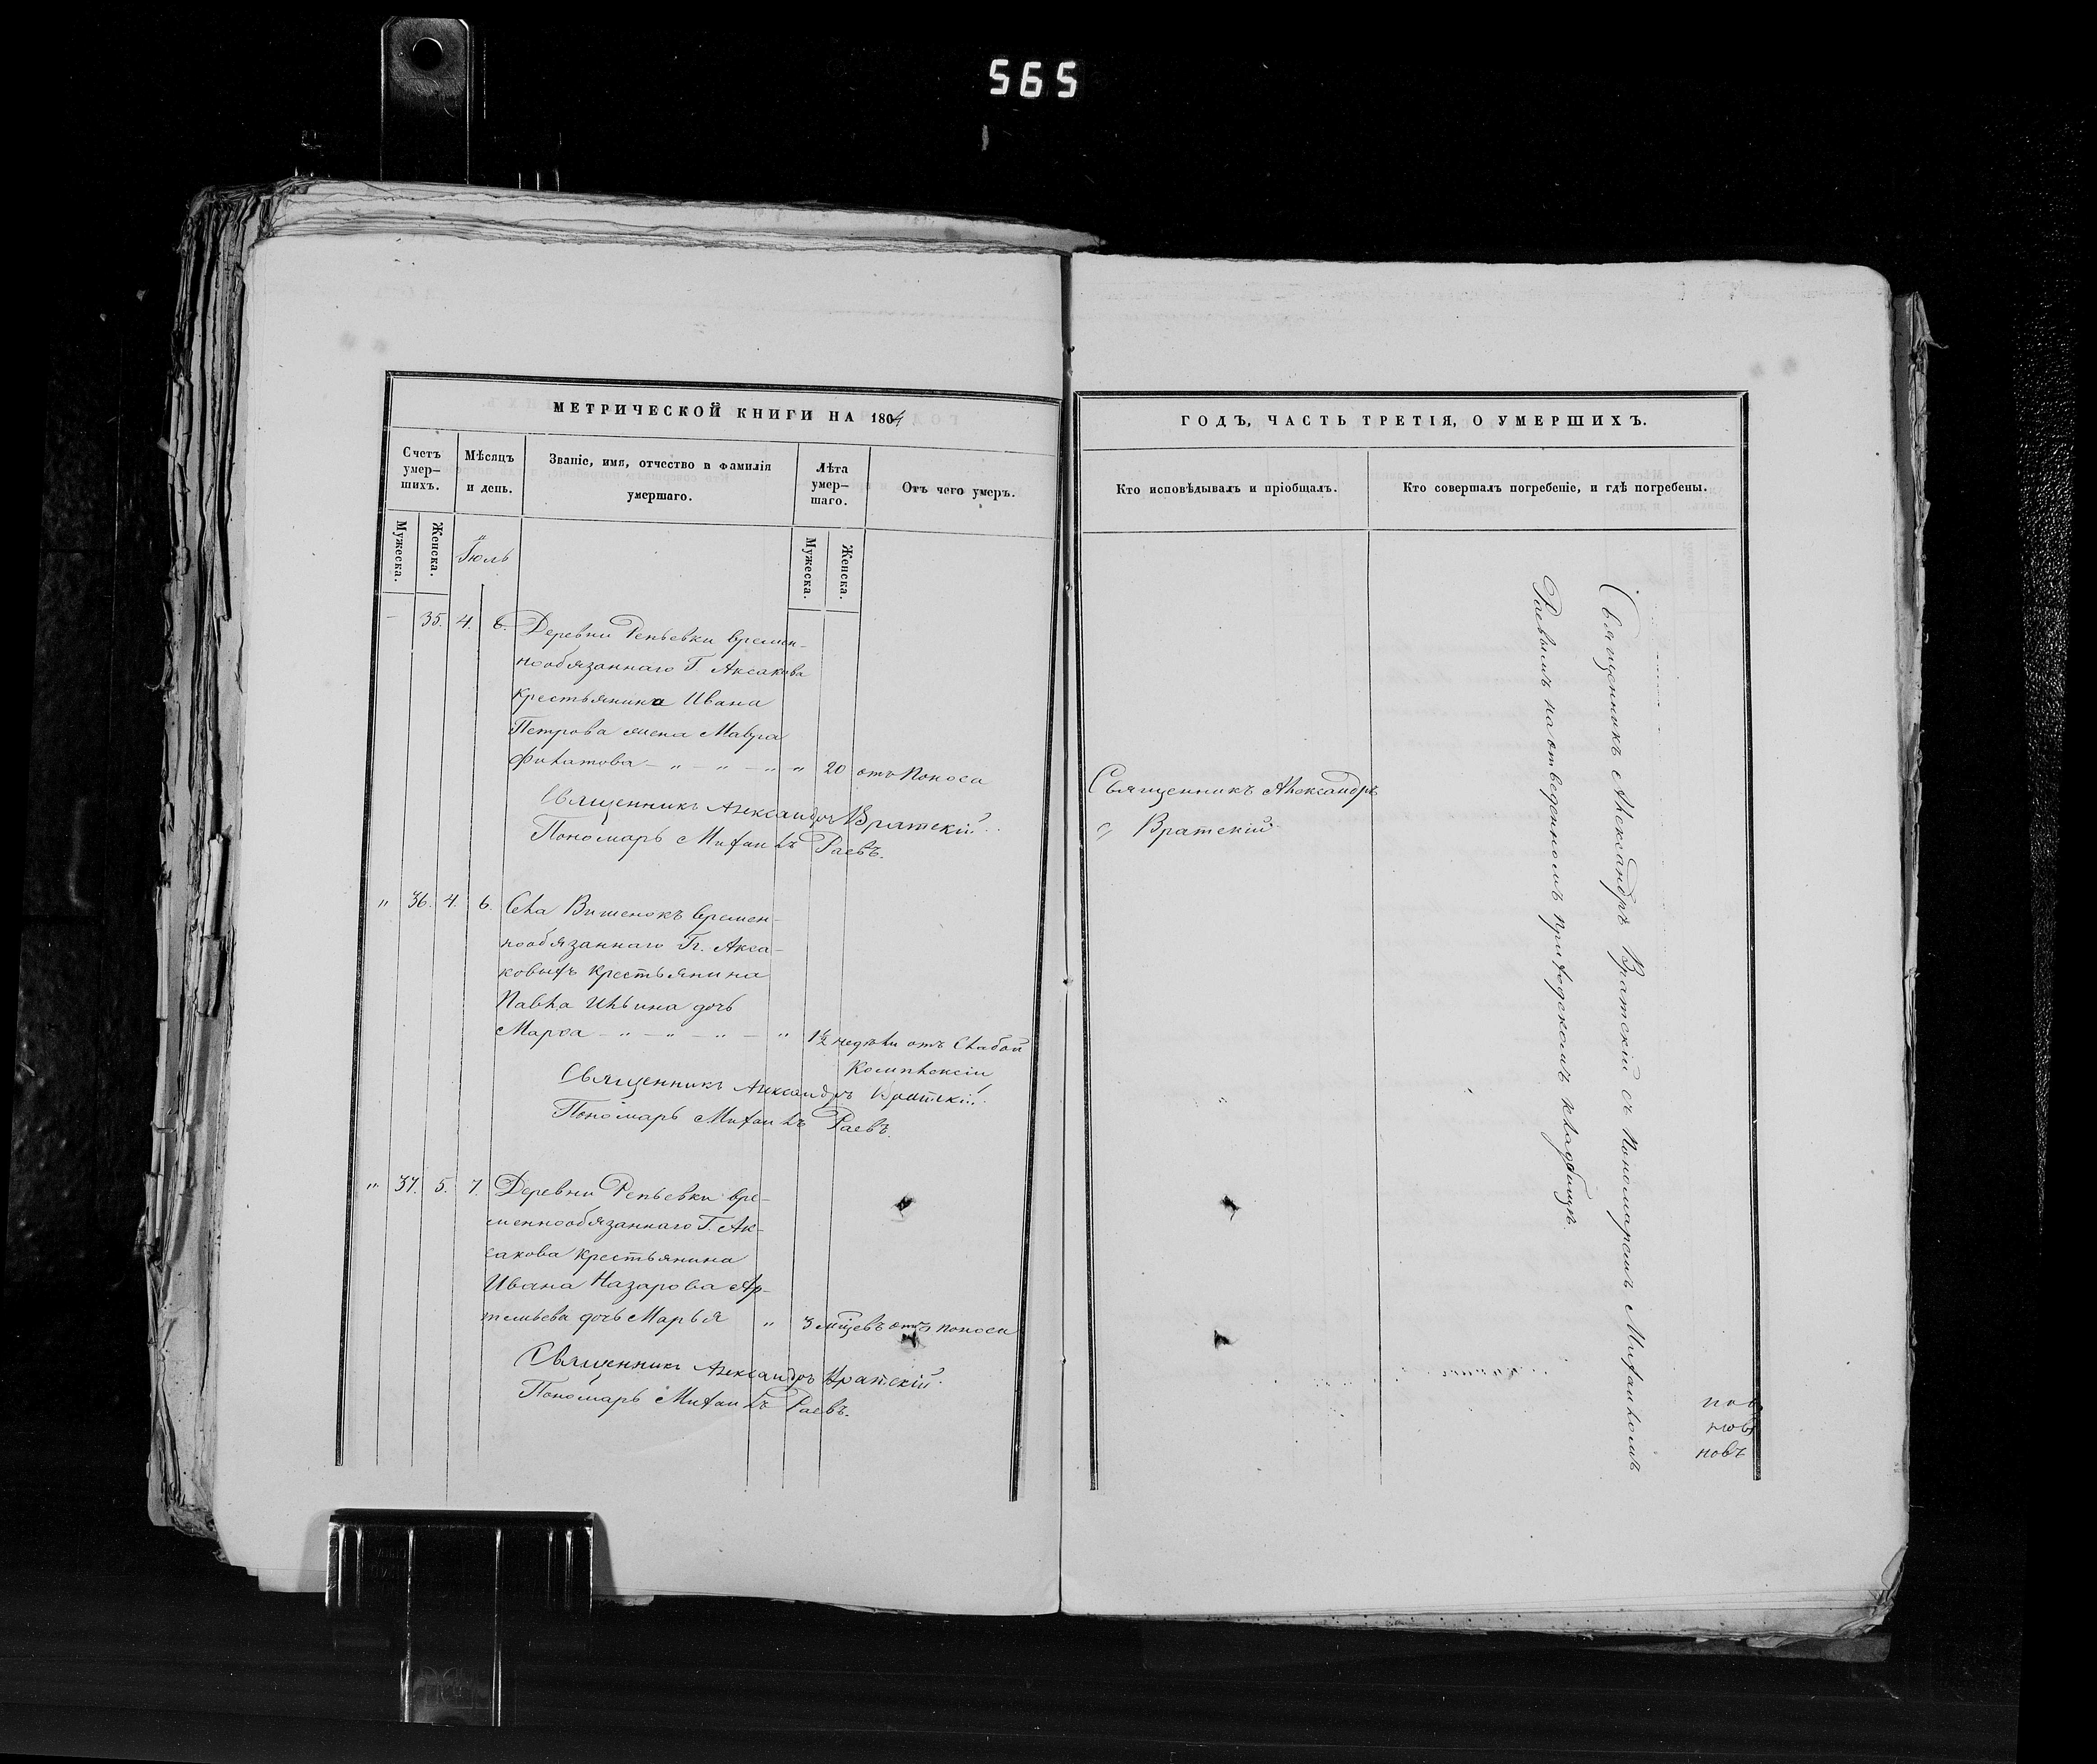 565
МЕТРИЧЕСКОЙ КНИГИ НА 1864
Счетъ умер-
шихъ.
Мѣсяцъ
и день.
Званіе, имя, отчество и фамилія
умершаго.
Лѣта
умер-
шаго.
Отъ чего умеръ.
Мужеска.
Женска.
Іюль
Мужеска.
Женска.
— 35. 4. 6. Деревни Репьевки времен-
нообязаннаго Г. Аксакова
крестьянина Ивана
Петрова жена Мавра
Филатова — „ — „ — „ „ 20 отъ поноса
Священникъ Александръ Вратскій.
Пономарь Михаилъ Раевъ.
„ 36. 4. 6. Села Вишенокъ времен-
нообязаннаго Гг. Акса-
ковыхъ крестьянина
Павла Ильина дочь
Марѳа — „ — „ — „ — „ 1½ недѣли отъ слабой
комплексіи
Священникъ Александръ Вратскій.
Пономарь Михаилъ Раевъ.
„ 37. 5. 7. Деревни Репьевки вре-
меннообязаннаго Г. Ак-
сакова крестьянина
Ивана Назарова Ар-
темьева дочь Марья „ 3 мѣсяцевъ отъ поноса
Священникъ Александръ Вратскій.
Пономарь Михаилъ Раевъ.
ГОДЪ, ЧАСТЬ ТРЕТІЯ, О УМЕРШИХЪ.
Кто исповѣдывалъ и пріобщалъ.
Кто совершалъ погребеніе, и гдѣ погребены.
Священникъ Александръ
Вратскій
Священникъ Александръ Вратскій съ Пономаремъ Михаиломъ
Раевымъ на отведенномъ приходскомъ кладбищѣ.
новъ